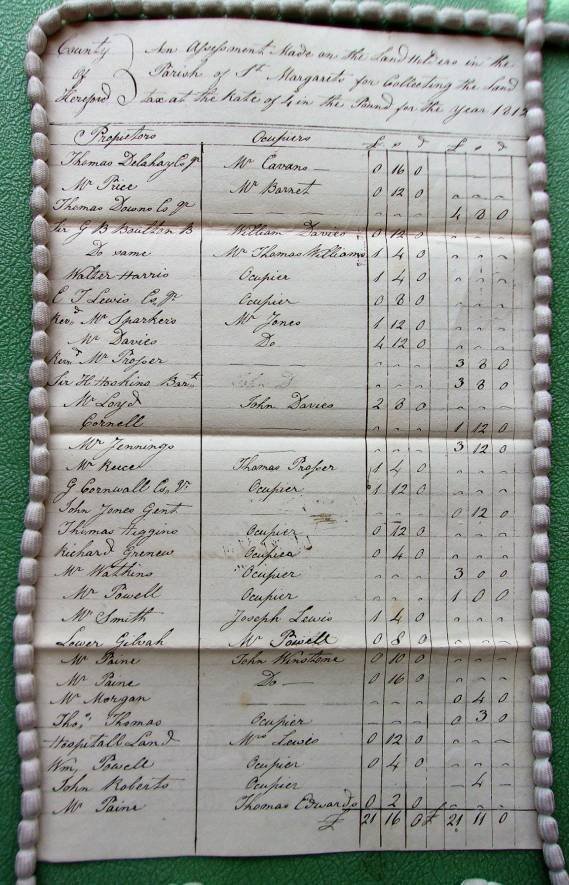 County An Assessment Made on the Land Holders in the
of Parish of St Margarits for Collecting the Land
Hereford tax at the Rate of 4 in the Pound for the Year 1812
Propietors Ocupiers £ s d £ s d
Thomas Delahay Esqr Mr Cavans 0 16 0
Mr Price Mr Barnet 0 12 0 " " "
Thomas Downs Esqr 4 8 0
Sir G B Boulton B William Davies 0 12 0 " " "
Do vame Mr Thomas Williams 1 4 0 " " "
Walter Harris Ocupier 1 4 0 " " "
E T Lewis Esqr Ocupier 0 8 0 " " "
Revd Mr Sparkers Mr Jones 1 12 0 " " "
Mr Davies Do 4 12 0 " " "
Revd Mr Prosser " " " 3 8 0
Sir H Hoskins Barnt " " " 3 8 0
Mr Loyd John Davies 2 8 0 " " "
Cornell " " " 1 12 0
Mr Jennings " " " 3 12 0
Mr Reece Thomas Prosser 1 4 0 " " "
G Cornwall Esqr Ocupier 1 12 0 " " "
John Jones Gent " " " 0 12 0
Thomas Higgins Ocupier 0 12 0 " " "
Richard Grenew Ocupier 0 4 0 " " "
Mr Watkins Ocupier " " " 3 0 0
Mr Powell Ocupier " " " 1 0 0
Mr Smith Joseph Lewis 1 4 0 " " "
Lower Gilvah Mr Powell 0 8 0 " " "
Mr Paine John Winstone 0 10 0 " " "
Mr Paine Do 0 16 0 " " "
Mr Morgan " " " 0 4 0
Thos Thomas Ocupier " " " 0 3 0
Hospitall Land Mrs Lewis 0 12 0 " " "
Wm Powell Ocupier 0 4 0 " " "
John Roberts Ocupier – 4 –
Mr Paine Thomas Edwards 0 2 0 " " "
£ 21 16 0 £ 21 11 0